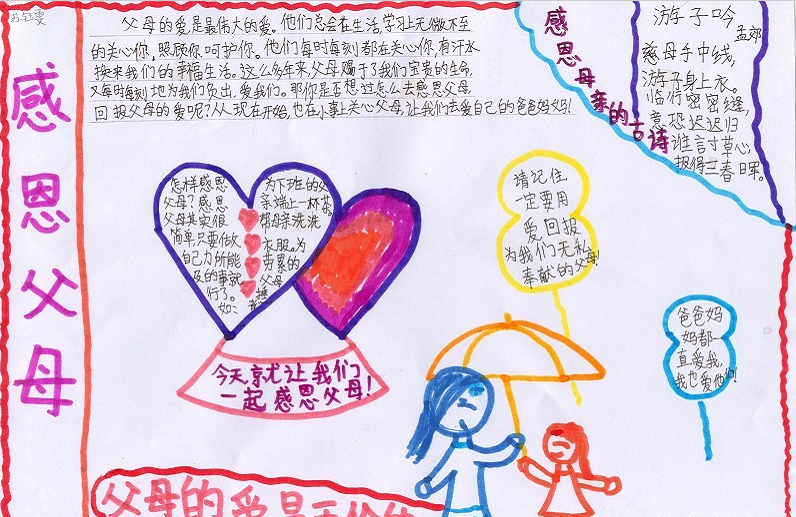 感恩父母
父母的爱是最伟大的爱。他们总会在生活,学习上无微不至
的关心你,照顾你,呵护你。他们每时每刻都在关心你,有汗水
换来我们的幸福生活。这么多年来,父母赐于了我们宝贵的生命,
又每时每刻地为我们负出,爱我们。那你是否想过怎么去感恩父母,
回报父母的爱呢?从现在开始,也在小事上关心父母,让我们去爱自己的爸爸妈妈!
感恩母亲的古诗
游子吟
孟郊
慈母手中线,
游子身上衣。
临行密密缝,
意恐迟迟归
谁言寸草心,
报得三春晖。
怎样感恩
父母?感恩
父母其实很
简单,只要做力
自己力所能
及的事就
行了。
如:
为下班的父
亲端上一杯茶。
帮母亲洗洗
衣服。为
劳累的
父母
请记住,
一定要用
爱回报
为我们无私
奉献的父母!
爸爸妈
妈都一
直爱我,
我也爱他们!
今天,就让我们
一起感恩父母!
父母的爱是